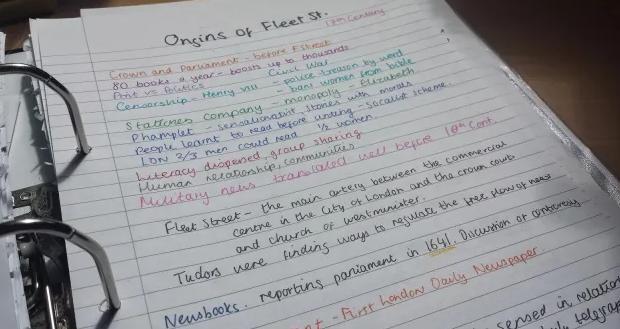 Origins of Fleet St. 17th Century
Crown and Parliament - before F Street
80 books a year - boosts up to thousands
Print vs Politics Civil War
Censorship - Henry VIII - police treason by word
- bans women from bible
Stationers company - monopoly - Elizabeth
Phamplet - sensationalist stories with morals
People learnt to read before writing - socialist scheme.
LDN 2/3 men could read 1/2 women
Literacy dispersed, group sharing
Human relationship, communities
Military news translated well before 18th Cent.
Fleet Street - the main artery between the commercial
centre in the City of London and the crown court
and church of westminster.
Tudors were finding ways to regulate the free flow of news
Newsbooks. reporting parliament in 1641. Discussion of controversy
- First London Daily Newspaper
sensed in relation
telegra